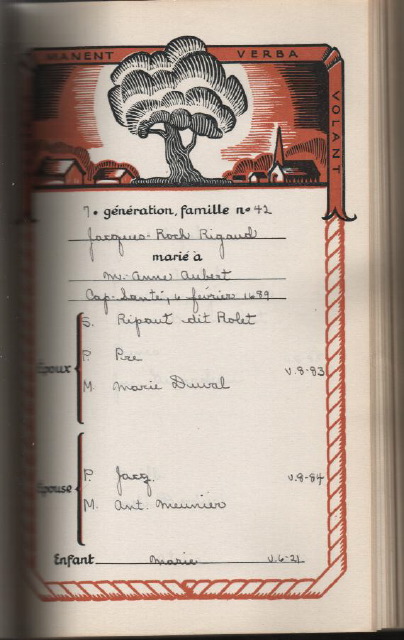 MANENT VERBA VOLANT
7e génération, famille no 42
Jacques-Roch Rigaud
marié à
M-Anne Aubert
Cap-Santé, 6 février 1689
S. Ripaut dit Rolet
Époux
P. Pre
V.8-83
M. Marie Duval
Épouse
P. Jacq.
V.8-84
M. Ant. Meunier
Enfant Marie V.6-21